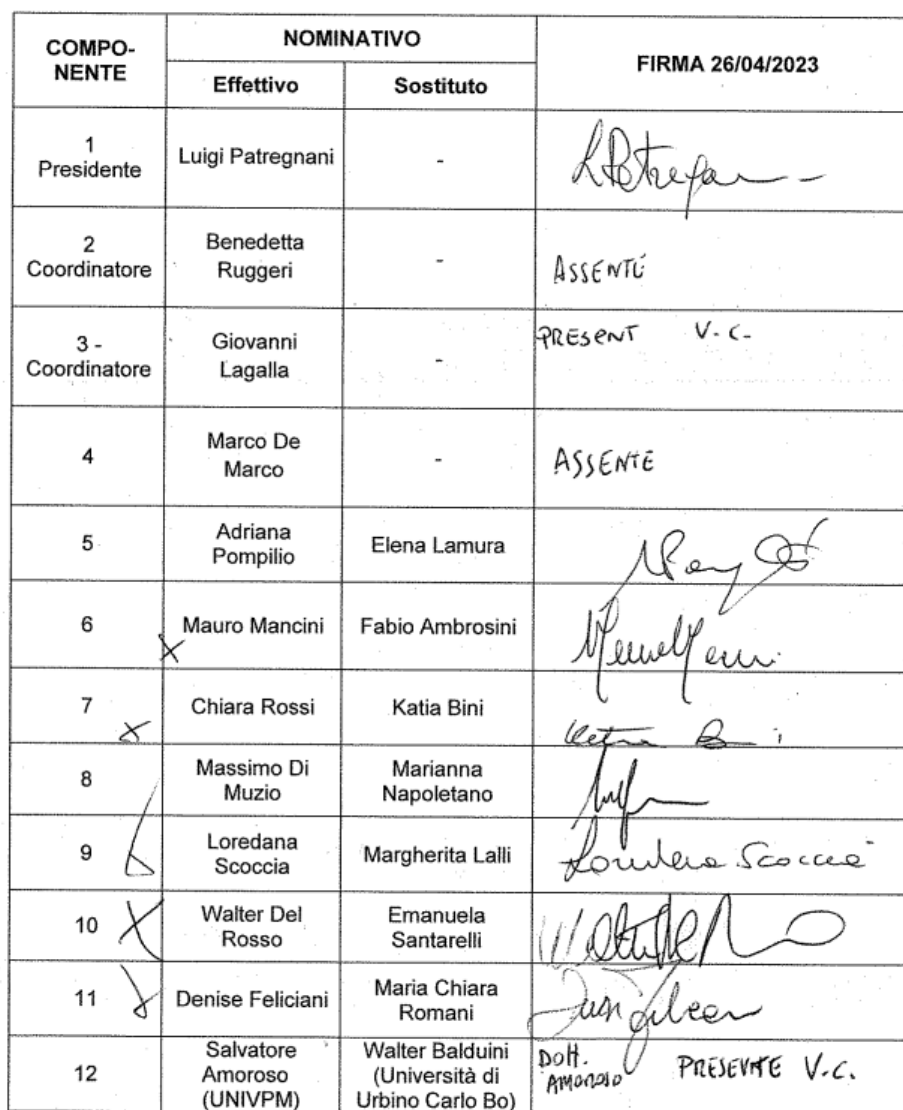 COMPO-
NENTE
NOMINATIVO
FIRMA 26/04/2023
Effettivo
Sostituto
1
Presidente
Luigi Patregnani
-
2
Coordinatore
Benedetta
Ruggeri
-
ASSENTE
3 -
Coordinatore
Giovanni
Lagalla
-
PRESENT V.C.
4
Marco De
Marco
-
ASSENTE
5
Adriana
Pompilio
Elena Lamura
6
Mauro Mancini
Fabio Ambrosini
7
Chiara Rossi
Katia Bini
8
Massimo Di
Muzio
Marianna
Napoletano
9
Loredana
Scoccia
Margherita Lalli
Loredana Scoccia
10
Walter Del
Rosso
Emanuela
Santarelli
11
Denise Feliciani
Maria Chiara
Romani
12
Salvatore
Amoroso
(UNIVPM)
Walter Balduini
(Università di
Urbino Carlo Bo)
DOTT.
AMOROSO
PRESENTE V.C.